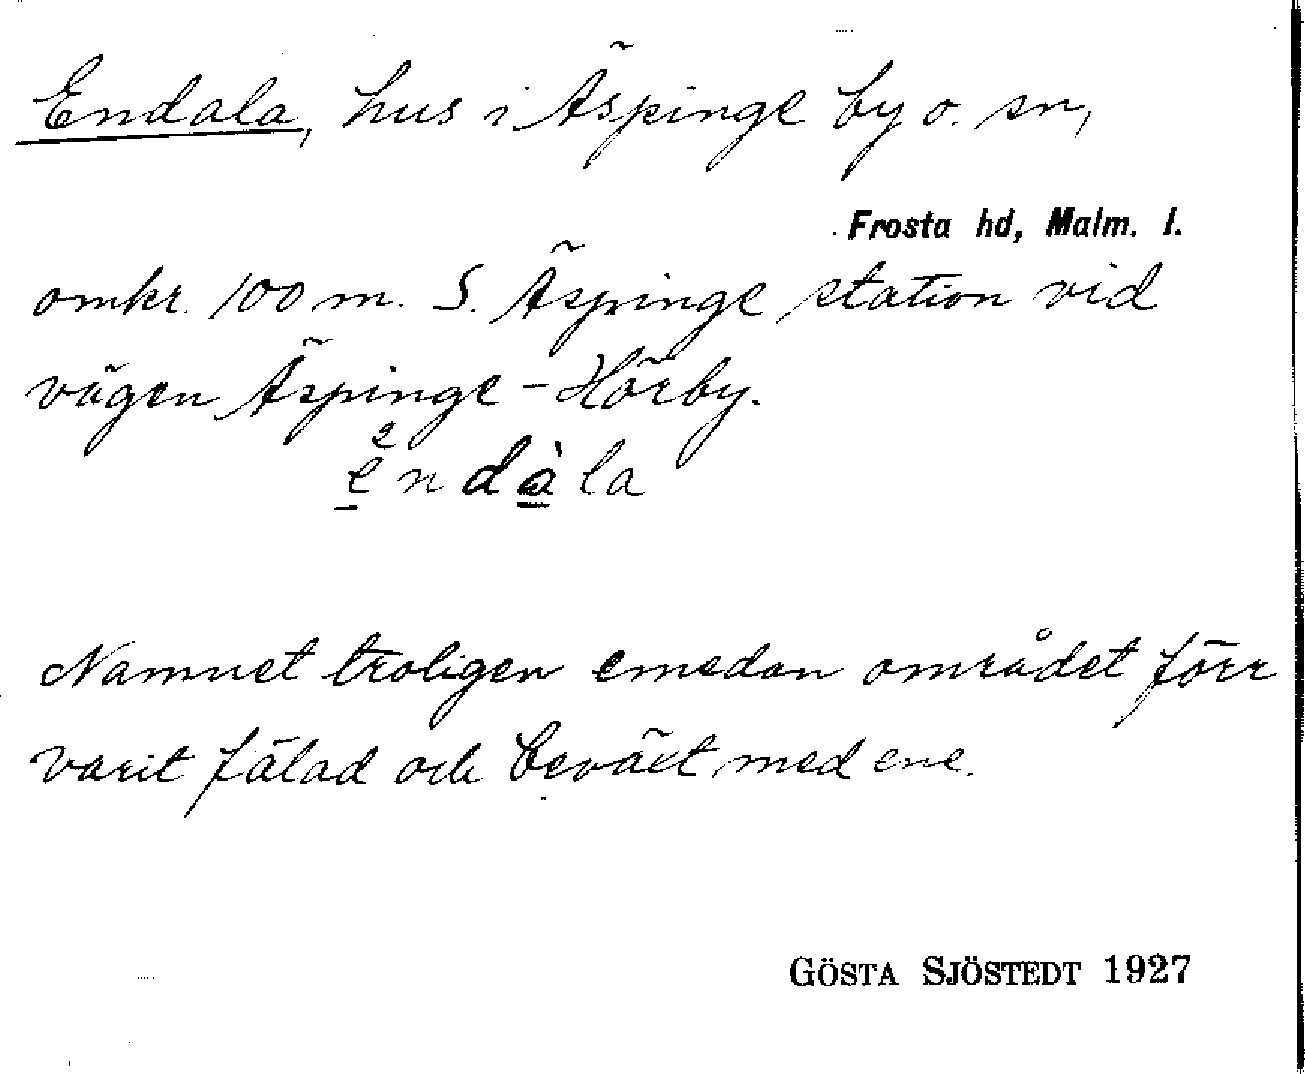 Endala, hus i Äspinge by o. sn,
Frosta hd, Malm. l.
omkr. 100 m. S. Äspinge station vid
vägen Äspinge - Hörby.
èndàla
Namnet troligen emedan området förr
varit fälad och beväxt med ene.
GÖSTA SJÖSTEDT 1927